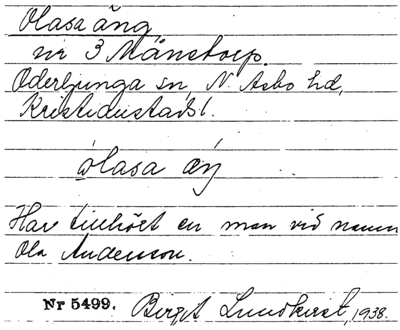 Olasa äng
nr 3 Månstorp.
Oderljunga sn, N. Åsbo hd,
Kristianstads l.
olasa äŋ
Har tillhört en man vid namn
Ola Andersson.
Nr 5499. Birgit Lundkvist, 1938.